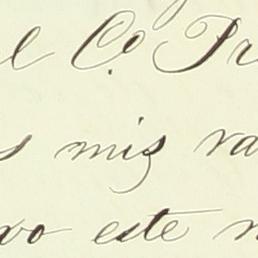 l Co Pr
s mis ra
vo este n